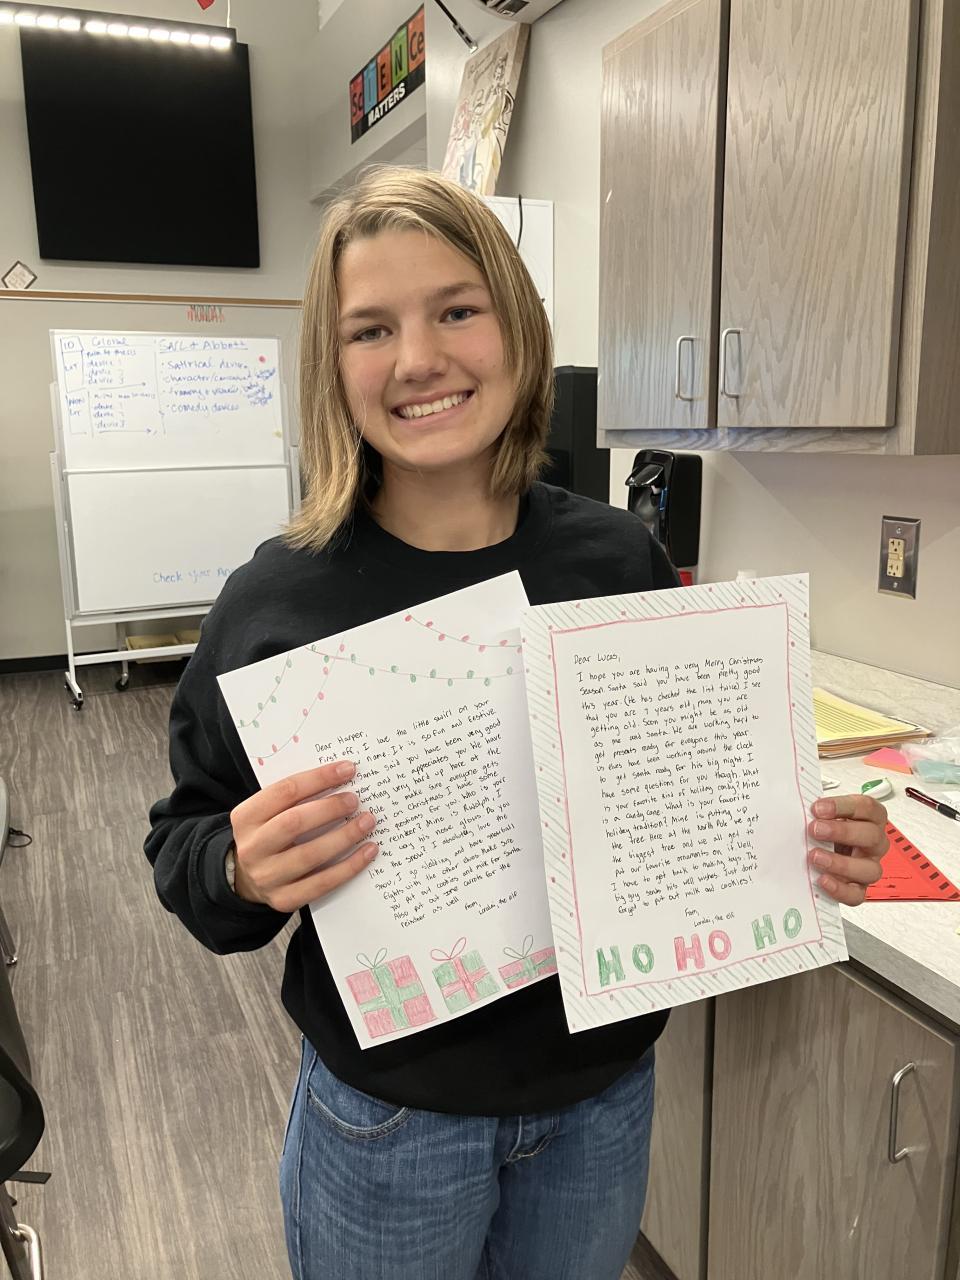 SCIENCE
MATTERS
MONDAY
10
Colonial
LIT
device 1
device 2
device 3
NON
LIT
device 1
device 2
device 3
SATL + Abbott
satirical devices
character/
comedy devices
Check your
Dear Harper,
First off, I love the little swirl on your
name. It is so fun and festive.
Santa said you have been very good
year and he appreciates you. We have
working very hard up here at the
Pole to make sure everyone gets
present on Christmas. I have some
Christmas questions for you. Who is your
reindeer? Mine is Rudolph, I
the way his nose glows. Do you
like the snow? I absolutely love the
snow, I go sledding and have snowball
fights with the other elves. Make sure
you put out cookies and milk for Santa.
Also put out some carrots for the
reindeer as well.
From,
Lorelei, the elf
Dear Lucas,
I hope you are having a very Merry Christmas
Season. Santa said you have been pretty good
this year. (He has checked the list twice) I see
that you are 7 years old, man you are
getting old. Soon you might be as old
as me and Santa. We are working hard to
get presents ready for everyone this year.
Us elves have been working around the clock
to get Santa ready for his big night. I
have some questions for you though. What
is your favorite kind of holiday candy? Mine
is a candy cane. What is your favorite
holiday tradition? Mine is putting up
the tree. Here at the North Pole we get
the biggest tree and we all get to
put our favorite ornaments on it. Well,
I have to get back to making toys. The
big guy sends his well wishes. Just don't
forget to put out milk and cookies!
From,
Lorelei, the elf
HO HO HO